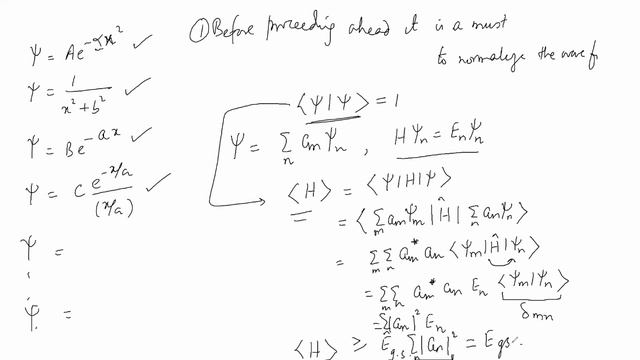 ψ = Ae^{-αx²} ✓
ψ = 1/(x²+b²) ✓
ψ = Be^{-ax} ✓
ψ = C e^{-x/a}/(x/a) ✓
ψ =
ψ =
① Before proceeding ahead it is a must
to normalize the wave f
⟨ψ|ψ⟩ = 1
ψ = Σ_n a_n ψ_n , Hψ_n = E_n ψ_n
⟨H⟩ = ⟨ψ|H|ψ⟩
= ⟨Σ_m a_m ψ_m |Ĥ| Σ_n a_n ψ_n⟩
= Σ_m Σ_n a_m* a_n ⟨ψ_m|Ĥ|ψ_n⟩
= Σ_m Σ_n a_m* a_n E_n ⟨ψ_m|ψ_n⟩
δ_mn
= Σ|a_n|² E_n
⟨H⟩ ≥ E_g.s. Σ_n |a_n|² = E_gs.